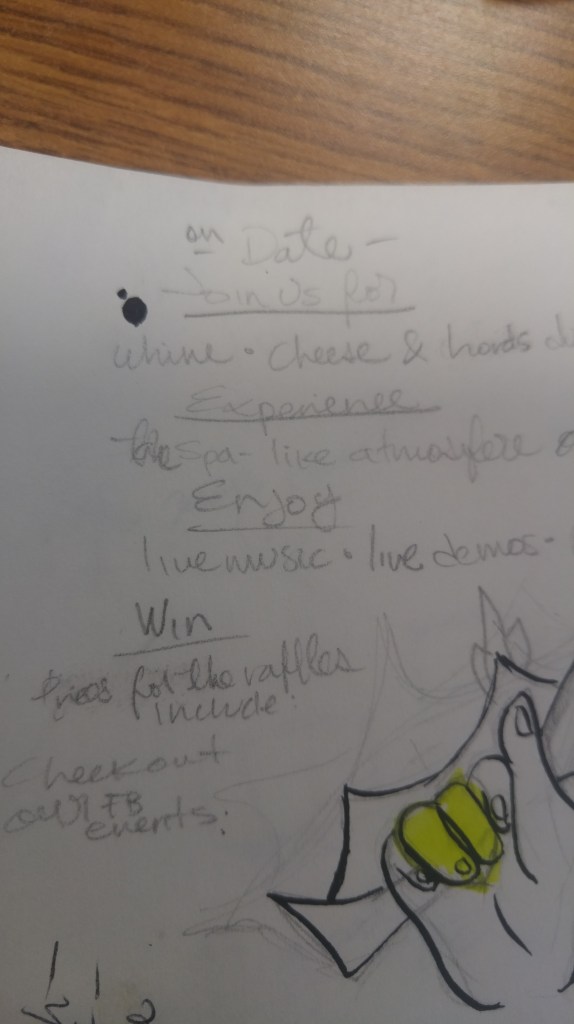 on Date -
Join Us for
whine • cheese & hords d
Experience
the spa-like atmosfere
Enjoy
live music • live demos -
Win
Prices for the raffles
include:
Check out
our FB
events: